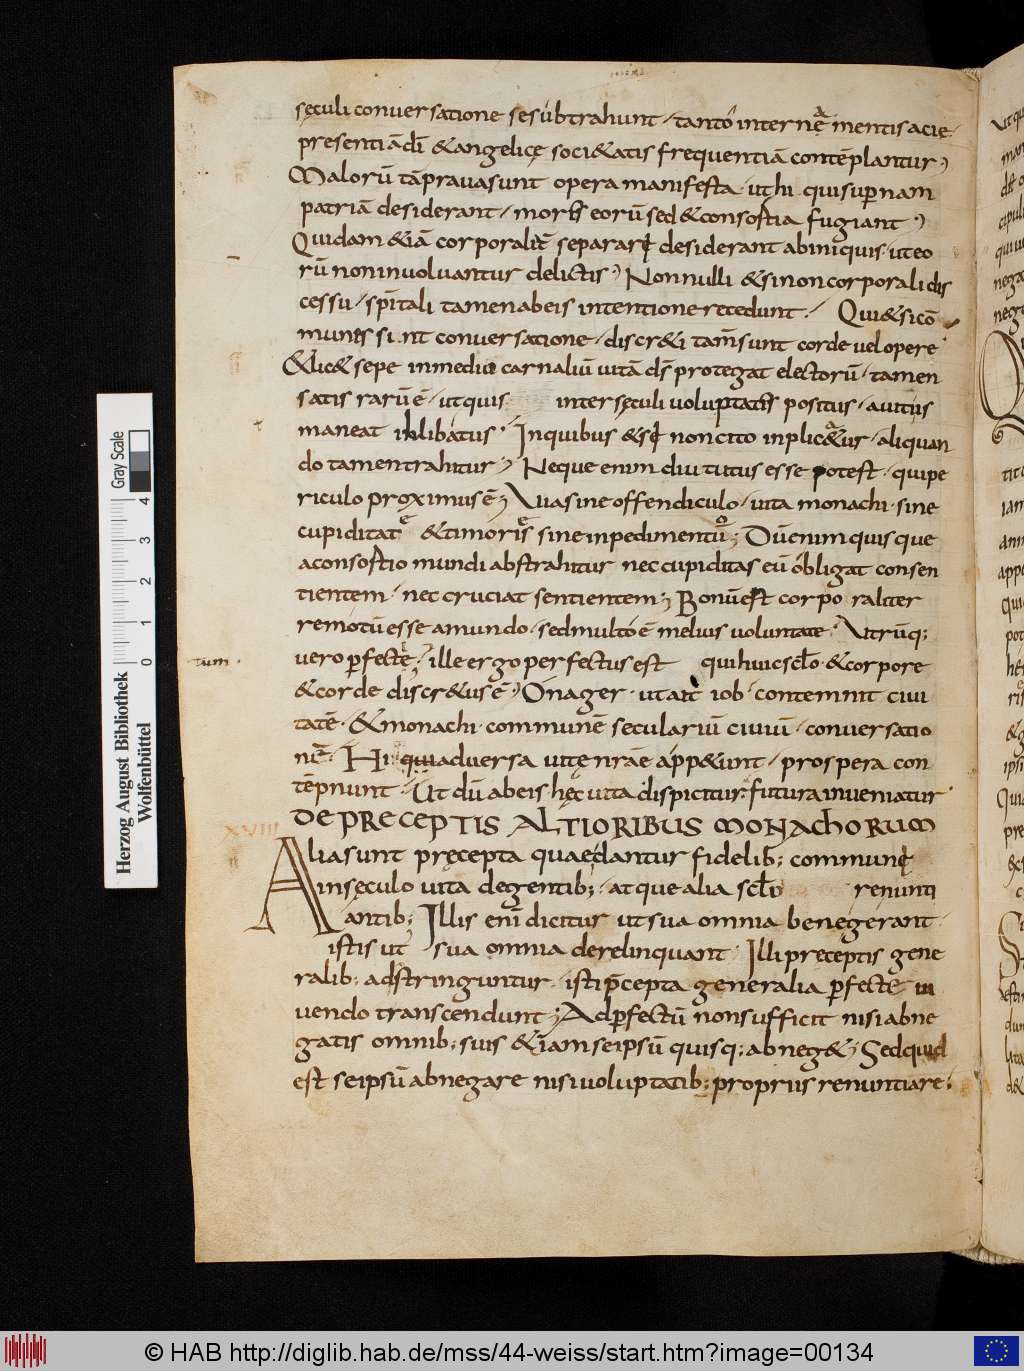 sęculi conuersatione se subtrahunt · tanto internę mentis acie ·
presentiā dī & angelicę soci&atis frequentiā contēplantur
Malorū tā praua sunt opera manifesta · ut hi qui supnam
patriā desiderant · mores eorū sed & consortia fugiant
Quidam &iā corporalit separari desiderant ab iniquis · ut eo
rū non inuoluantur delictis Non nulli & si non corporali dis
cessu · spitali tamen ab eis intentione recedunt · Qui & si cō
munes sunt conuersatione · discr&i tam sunt corde uel opere
& lic& sepe in mediū carnaliū uitā ds protegat electorū · tamen
satis rarū ē · ut quis inter sęculi uoluptates positus · a uitiis
maneat inlibatus · In quibus & si non cito inplic&ur · aliquan
do tamen trahitur Neque enim diu tutus esse potest · qui pe
riculo proximus ē Via sine offendiculo · uita monachi · sine
cupiditate & timoris sine inpedimentū; Dū enim quisque
a consortio mundi abstrahitur nec cupiditas eū obligat consen
tientem · nec cruciat sentientem; Bonū est corporaliter
remotū esse a mundo · sed multo ē melius uoluntate · Vtrūq;
tum ·
uero pfecte ille ergo perfectus est qui huic sclo · & corpore
& corde discr&us ē Onager · ut ait iob · contemnit ciui
tatē · & monachi · communē seculariū ciuiū · conuersatio
nē · Hi qui aduersa uite nrāe app&unt · prospera con
tēpnunt · Ut dū ab eis hęc uita dispicitur · futura inueniatur
XVIII DE PRECEPTIS ALTIORIBUS MONACHORUM
Alia sunt pręcepta quae dantur fidelib; commune
in sęculo uita degentib; · atque alia sclo renunti
antib; Illis enī dicitur ut sua omnia bene gerant ·
istis ut sua omnia derelinquant · Illi pręceptis gene
ralib; adstringuntur · isti pcepta generalia pfecte ui
uendo transcendunt; Ad pfectū non sufficit nisi abne
gatis omnib; suis &iam se ipsū quisq; abneg&; Sed quid
est se ipsū abnegare nisi uoluptatib; propriis renuntiare;
Herzog August Bibliothek
Wolfenbüttel
Gray Scale
0 1 2 3 4
© HAB http://diglib.hab.de/mss/44-weiss/start.htm?image=00134